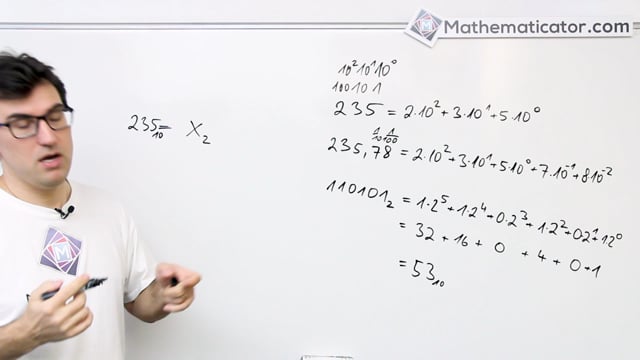 Mathematicator.com
235₁₀ = X₂
10² 10¹ 10⁰
100 10 1
235 = 2·10² + 3·10¹ + 5·10⁰
1/10 1/100
235,78 = 2·10² + 3·10¹ + 5·10⁰ + 7·10⁻¹ + 8·10⁻²
110101₂ = 1·2⁵ + 1·2⁴ + 0·2³ + 1·2² + 0·2¹ + 1·2⁰
= 32 + 16 + 0 + 4 + 0 + 1
= 53₁₀